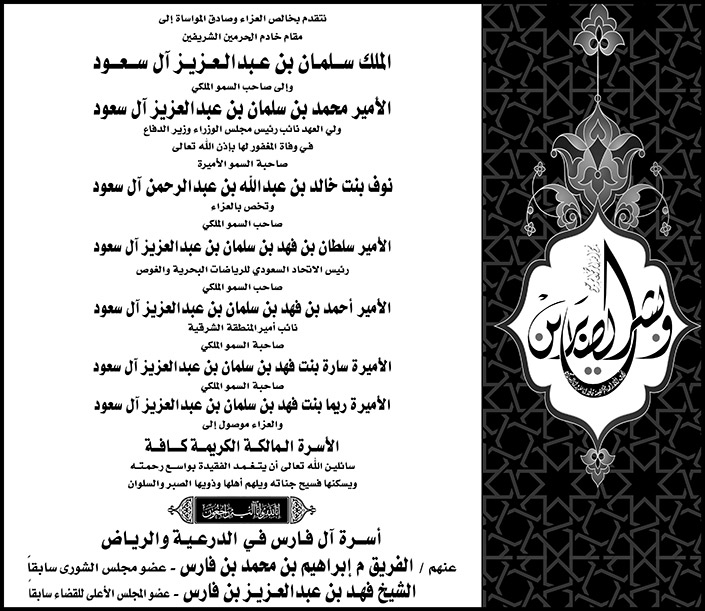 نتقدم بخالص العزاء وصادق المواساة إلى
مقام خادم الحرمين الشريفين
الملك سلمان بن عبدالعزيز آل سعود
وإلى صاحب السمو الملكي
الأمير محمد بن سلمان بن عبدالعزيز آل سعود
ولي العهد نائب رئيس مجلس الوزراء وزير الدفاع
في وفاة المغفور لها بإذن الله تعالى
صاحبة السمو الأميرة
نوف بنت خالد بن عبدالله بن عبدالرحمن آل سعود
وتخص بالعزاء
صاحب السمو الملكي
الأمير سلطان بن فهد بن سلمان بن عبدالعزيز آل سعود
رئيس الاتحاد السعودي للرياضات البحرية والغوص
صاحب السمو الملكي
الأمير أحمد بن فهد بن سلمان بن عبدالعزيز آل سعود
نائب أمير المنطقة الشرقية
صاحبة السمو الملكي
الأميرة سارة بنت فهد بن سلمان بن عبدالعزيز آل سعود
صاحبة السمو الملكي
الأميرة ريما بنت فهد بن سلمان بن عبدالعزيز آل سعود
والعزاء موصول إلى
الأسرة المالكة الكريمة كافة
سائلين الله تعالى أن يتغمد الفقيدة بواسع رحمته
ويسكنها فسيح جناته ويلهم أهلها وذويها الصبر والسلوان
إنا لله وإنا إليه راجعون
أسرة آل فارس في الدرعية والرياض
عنهم / الفريق م إبراهيم بن محمد بن فارس - عضو مجلس الشورى سابقاً
الشيخ فهد بن عبدالعزيز بن فارس - عضو المجلس الأعلى للقضاء سابقاً
وبشر الصابرين